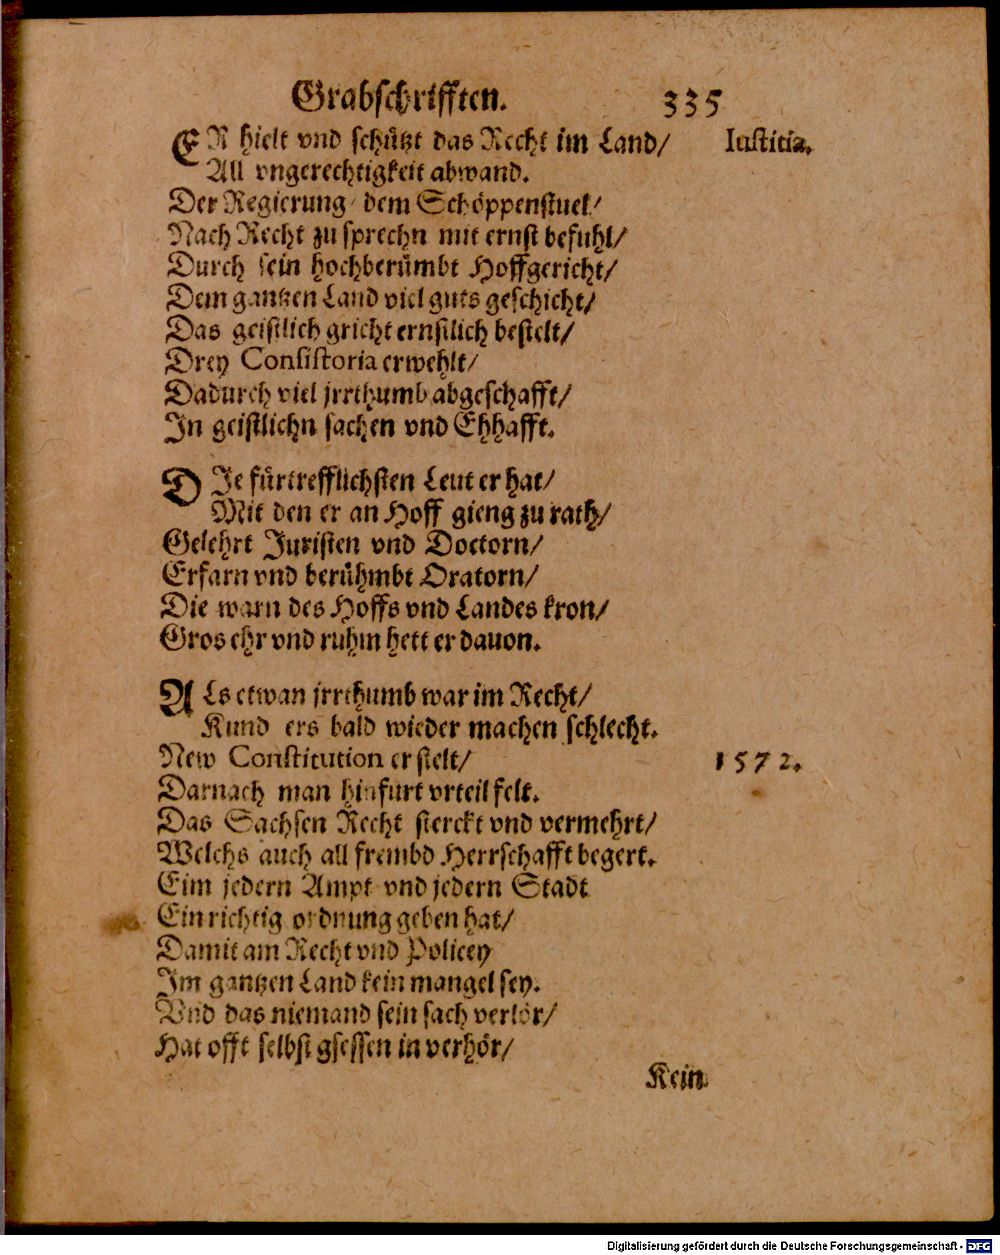 Grabschrifften. 335
ER hielt vnd schützt das Recht im Land/ Iustitia.
All vngerechtigkeit abwand.
Der Regierung/ dem Schöppenstuel/
Nach Recht zu sprechn mit ernst befuhl/
Durch sein hochberümbt Hoffgericht/
Dem gantzen Land viel guts geschicht/
Das geistlich gricht ernstlich bestelt/
Drey Consistoria erwehlt/
Dadurch viel jrrthumb abgeschafft/
In geistlichn sachen vnd Ehhafft.
DIe fürtrefflichsten Leut er hat/
Mit den er an Hoff gieng zu rath/
Gelehrt Juristen vnd Doctorn/
Erfarn vnd berühmbt Oratorn/
Die warn des Hoffs vnd Landes kron/
Gros ehr vnd ruhm hett er dauon.
ALs etwan jrrthumb war im Recht/
Kund ers bald wieder machen schlecht.
New Constitution er stelt/ 1572.
Darnach man hinfurt vrteil felt.
Das Sachsen Recht sterckt vnd vermehrt/
Welchs auch all frembd Herrschafft begert.
Eim jedern Ampt vnd jedern Stadt
Ein richtig ordnung geben hat/
Damit am Recht vnd Policey
Im gantzen Land kein mangel sey.
Vnd das niemand sein sach verlör/
Hat offt selbst gsessen in verhör/
Kein
Digitalisierung gefördert durch die Deutsche Forschungsgemeinschaft - DFG